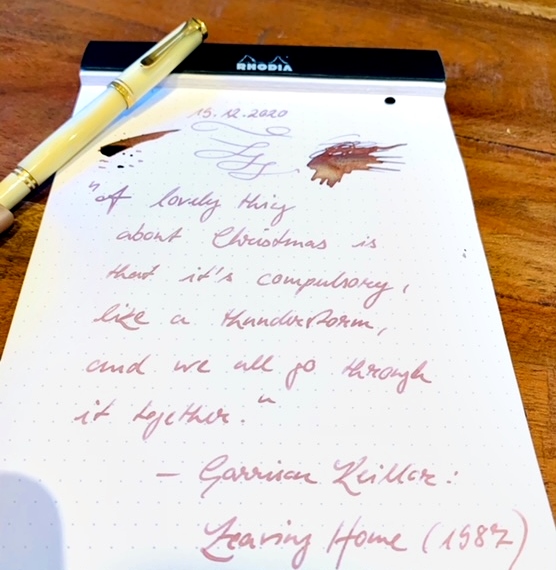 RHODIA
15.12.2020
"A lovely thing
about Christmas is
that it's compulsory,
like a thunderstorm,
and we all go through
it together."
- Garrison Keillor:
Leaving Home (1987)